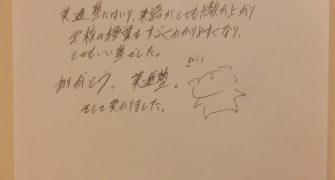 英進塾にはいり、英語がとても点数が上がり
学校の授業もすごくわかりやすくなり、
とてもいい塾でした。
ありがとう。英進塾。
そして受かりました。